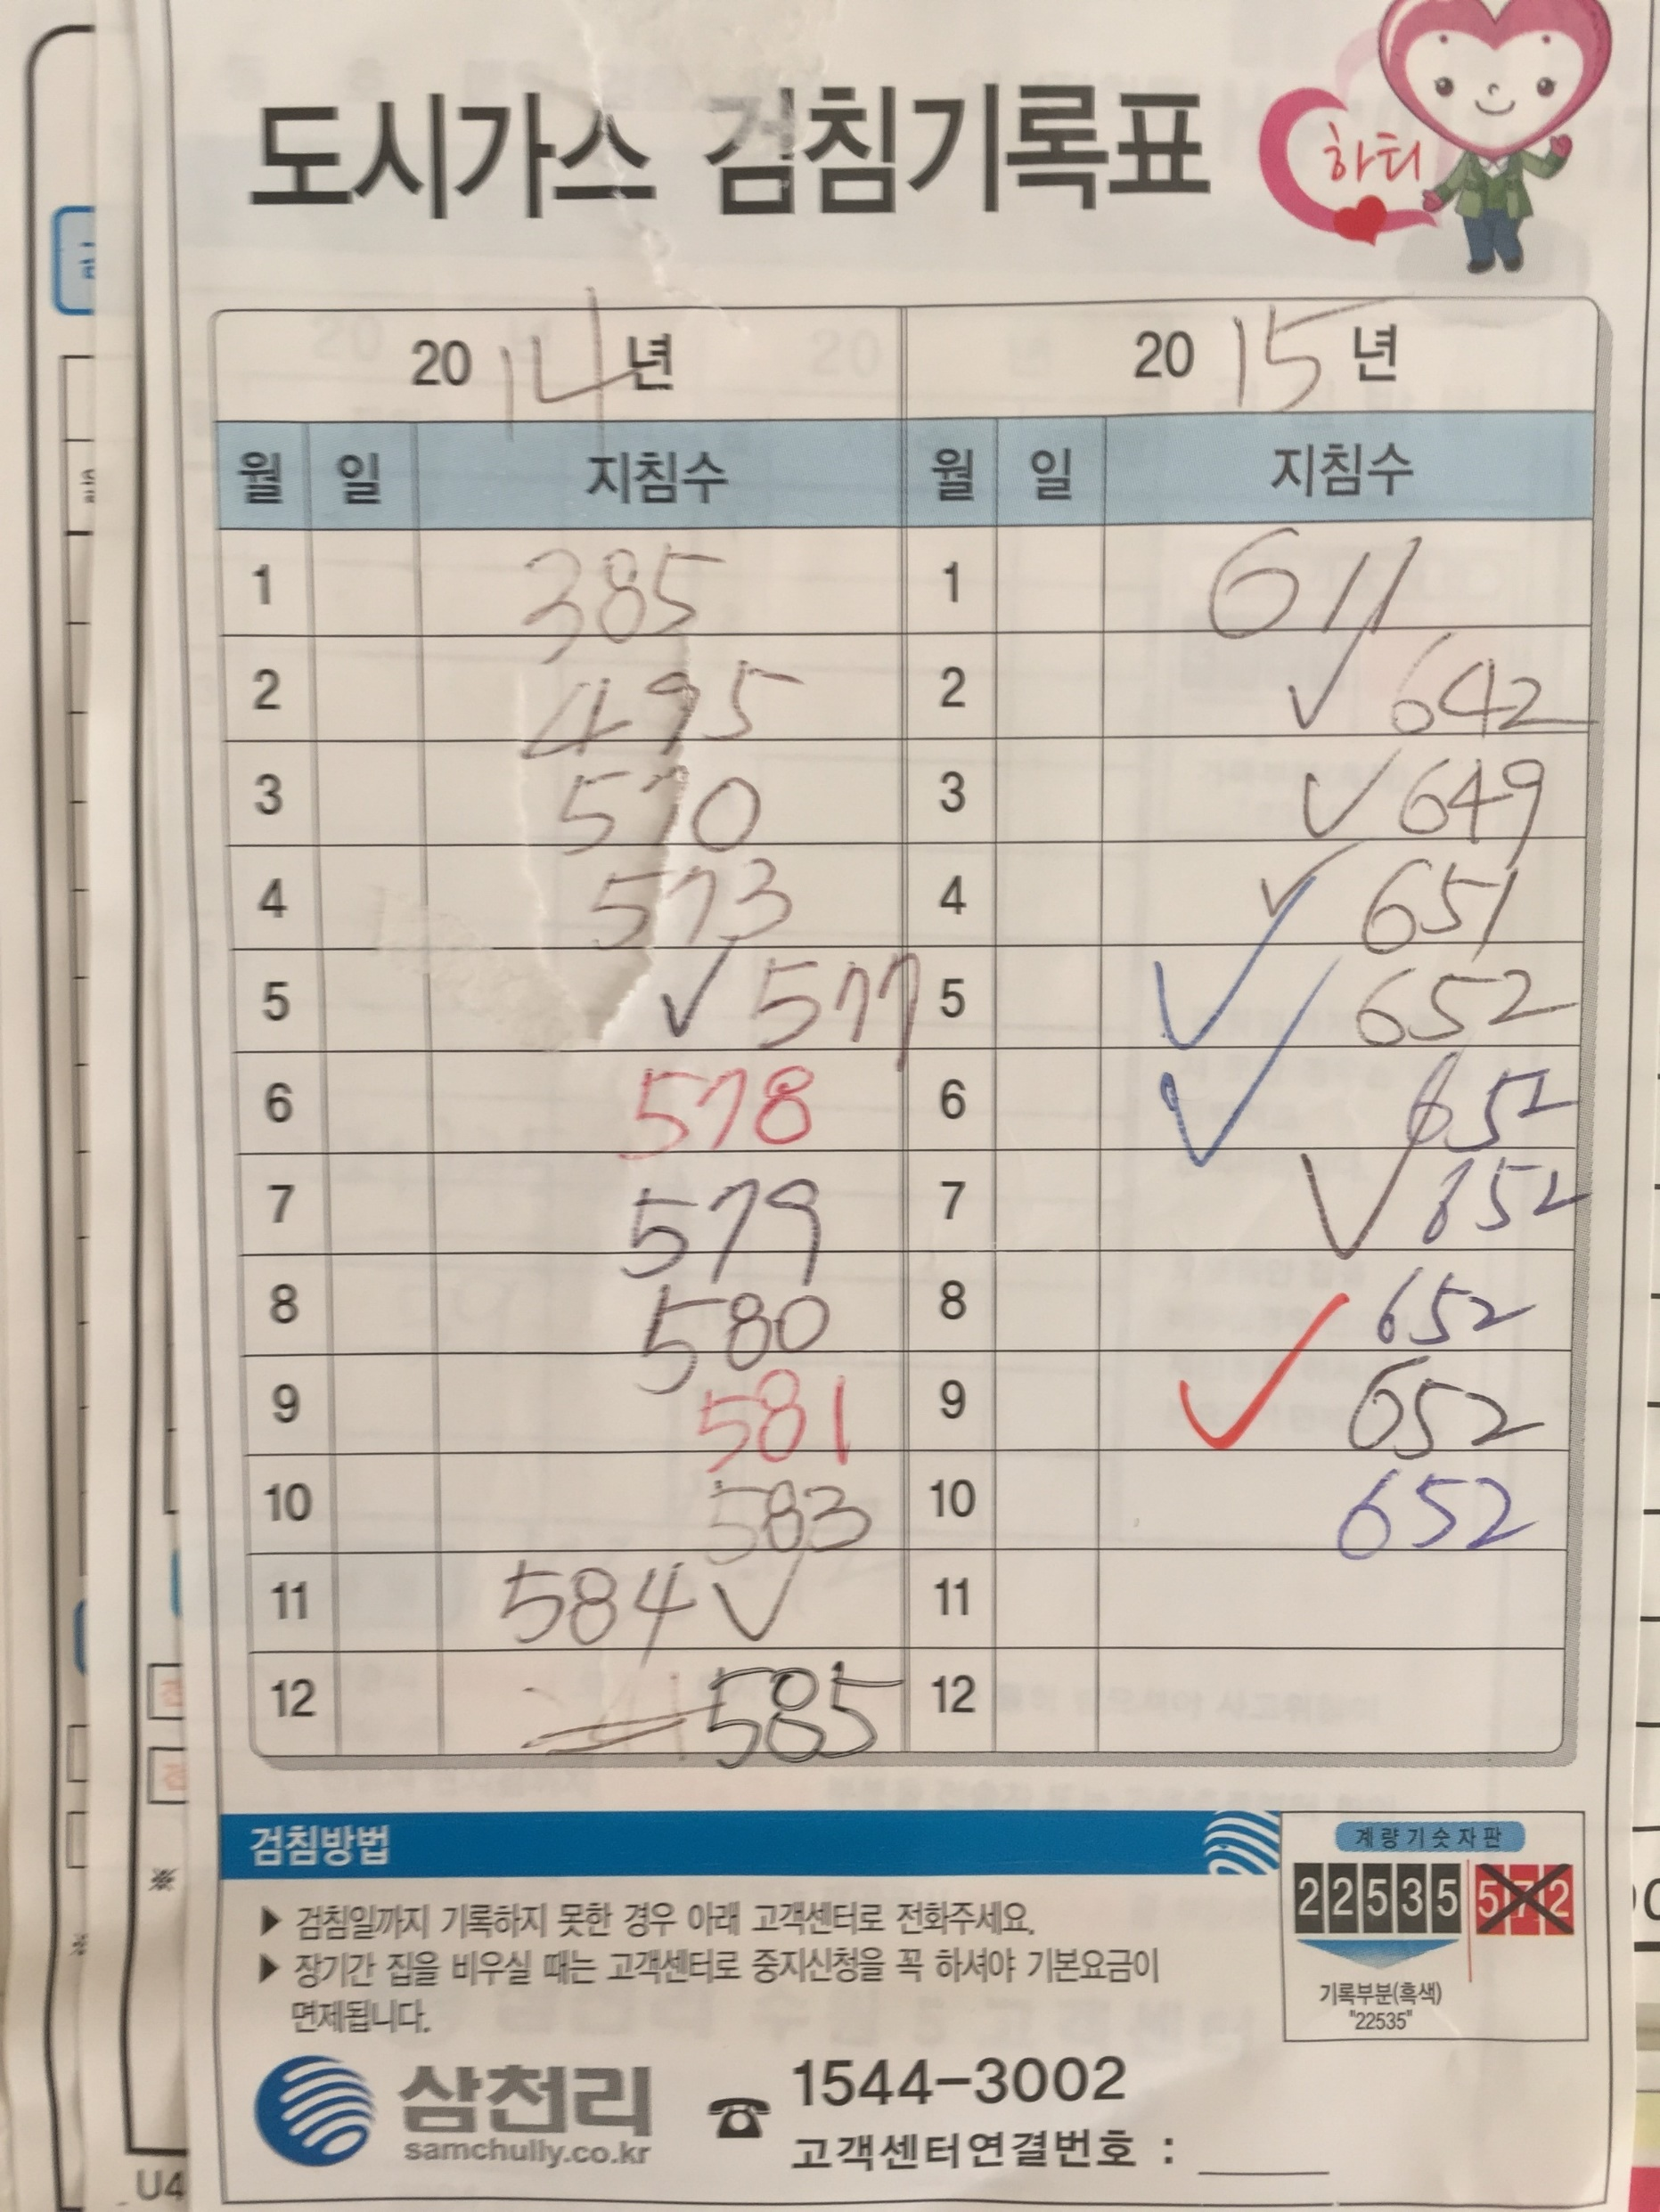 도시가스 검침기록표
하티
2014년 2015년
월 일 지침수 월 일 지침수
1 385 1 611
2 495 2 642
3 570 3 649
4 573 4 651
5 577 5 652
6 578 6 652
7 579 7 652
8 580 8 652
9 581 9 652
10 583 10 652
11 584 11
12 585 12
검침방법
계량기숫자판
22535 572
▶ 검침일까지 기록하지 못한 경우 아래 고객센터로 전화주세요.
▶ 장기간 집을 비우실 때는 고객센터로 중지신청을 꼭 하셔야 기본요금이
면제됩니다.
기록부분(흑색)
"22535"
삼천리
samchully.co.kr
☎ 1544-3002
고객센터연결번호 :
U4